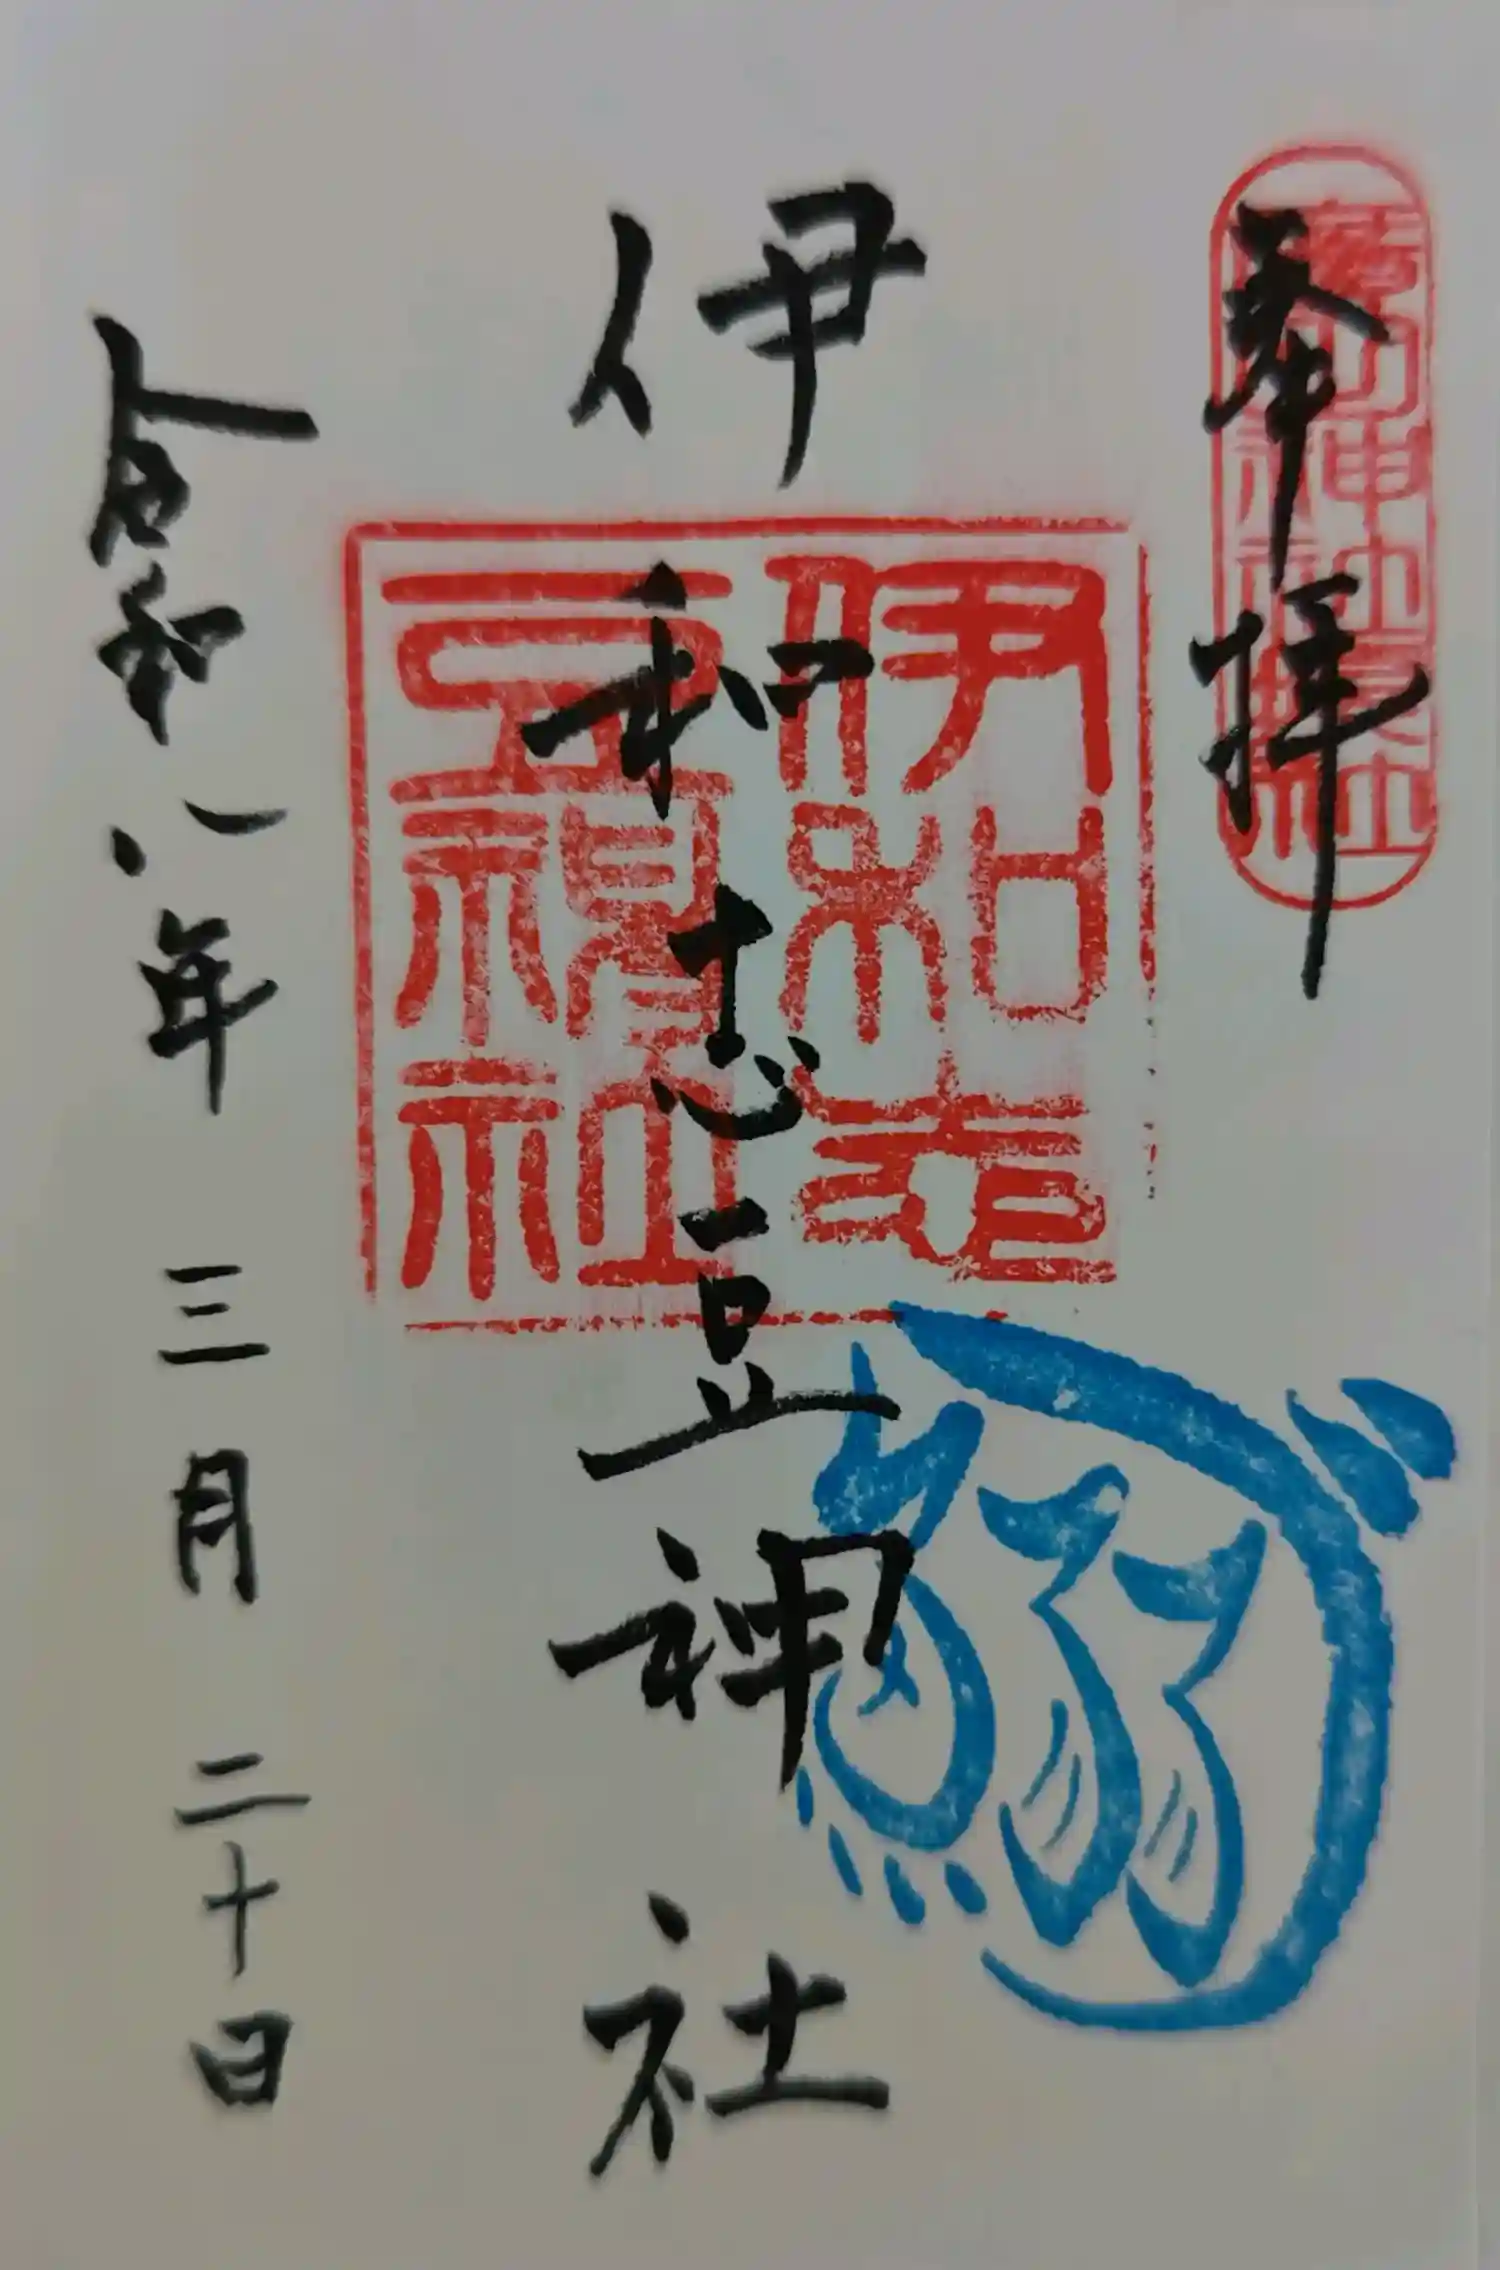 奉拝
伊和志豆神社
伊和志
豆神社
令和八年三月二十日